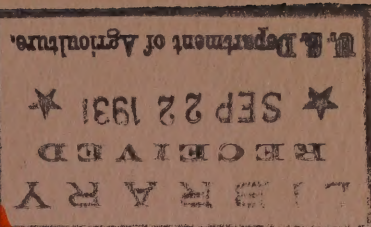 LIBRARY
RECEIVED
★ SEP 22 1931 ★
U. S. Department of Agriculture.